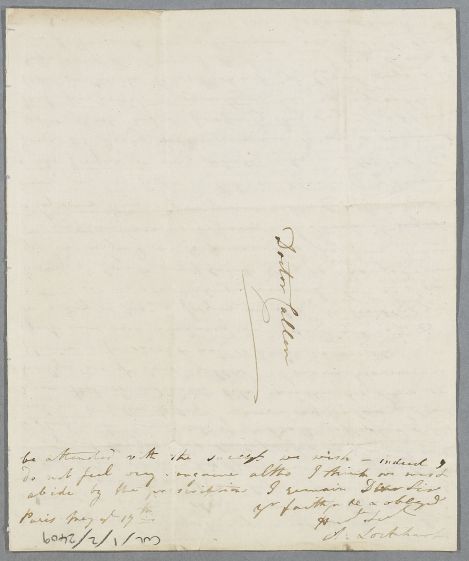 Doctor Cullen
be attended with the success we wish – indeed I
do not feel very sanguine altho I think we must
abide by the prescriptions I remain Dear Sir
yr faithful & obliged
Paris May 19th
J. Lockhart
CUL/1/2/2409